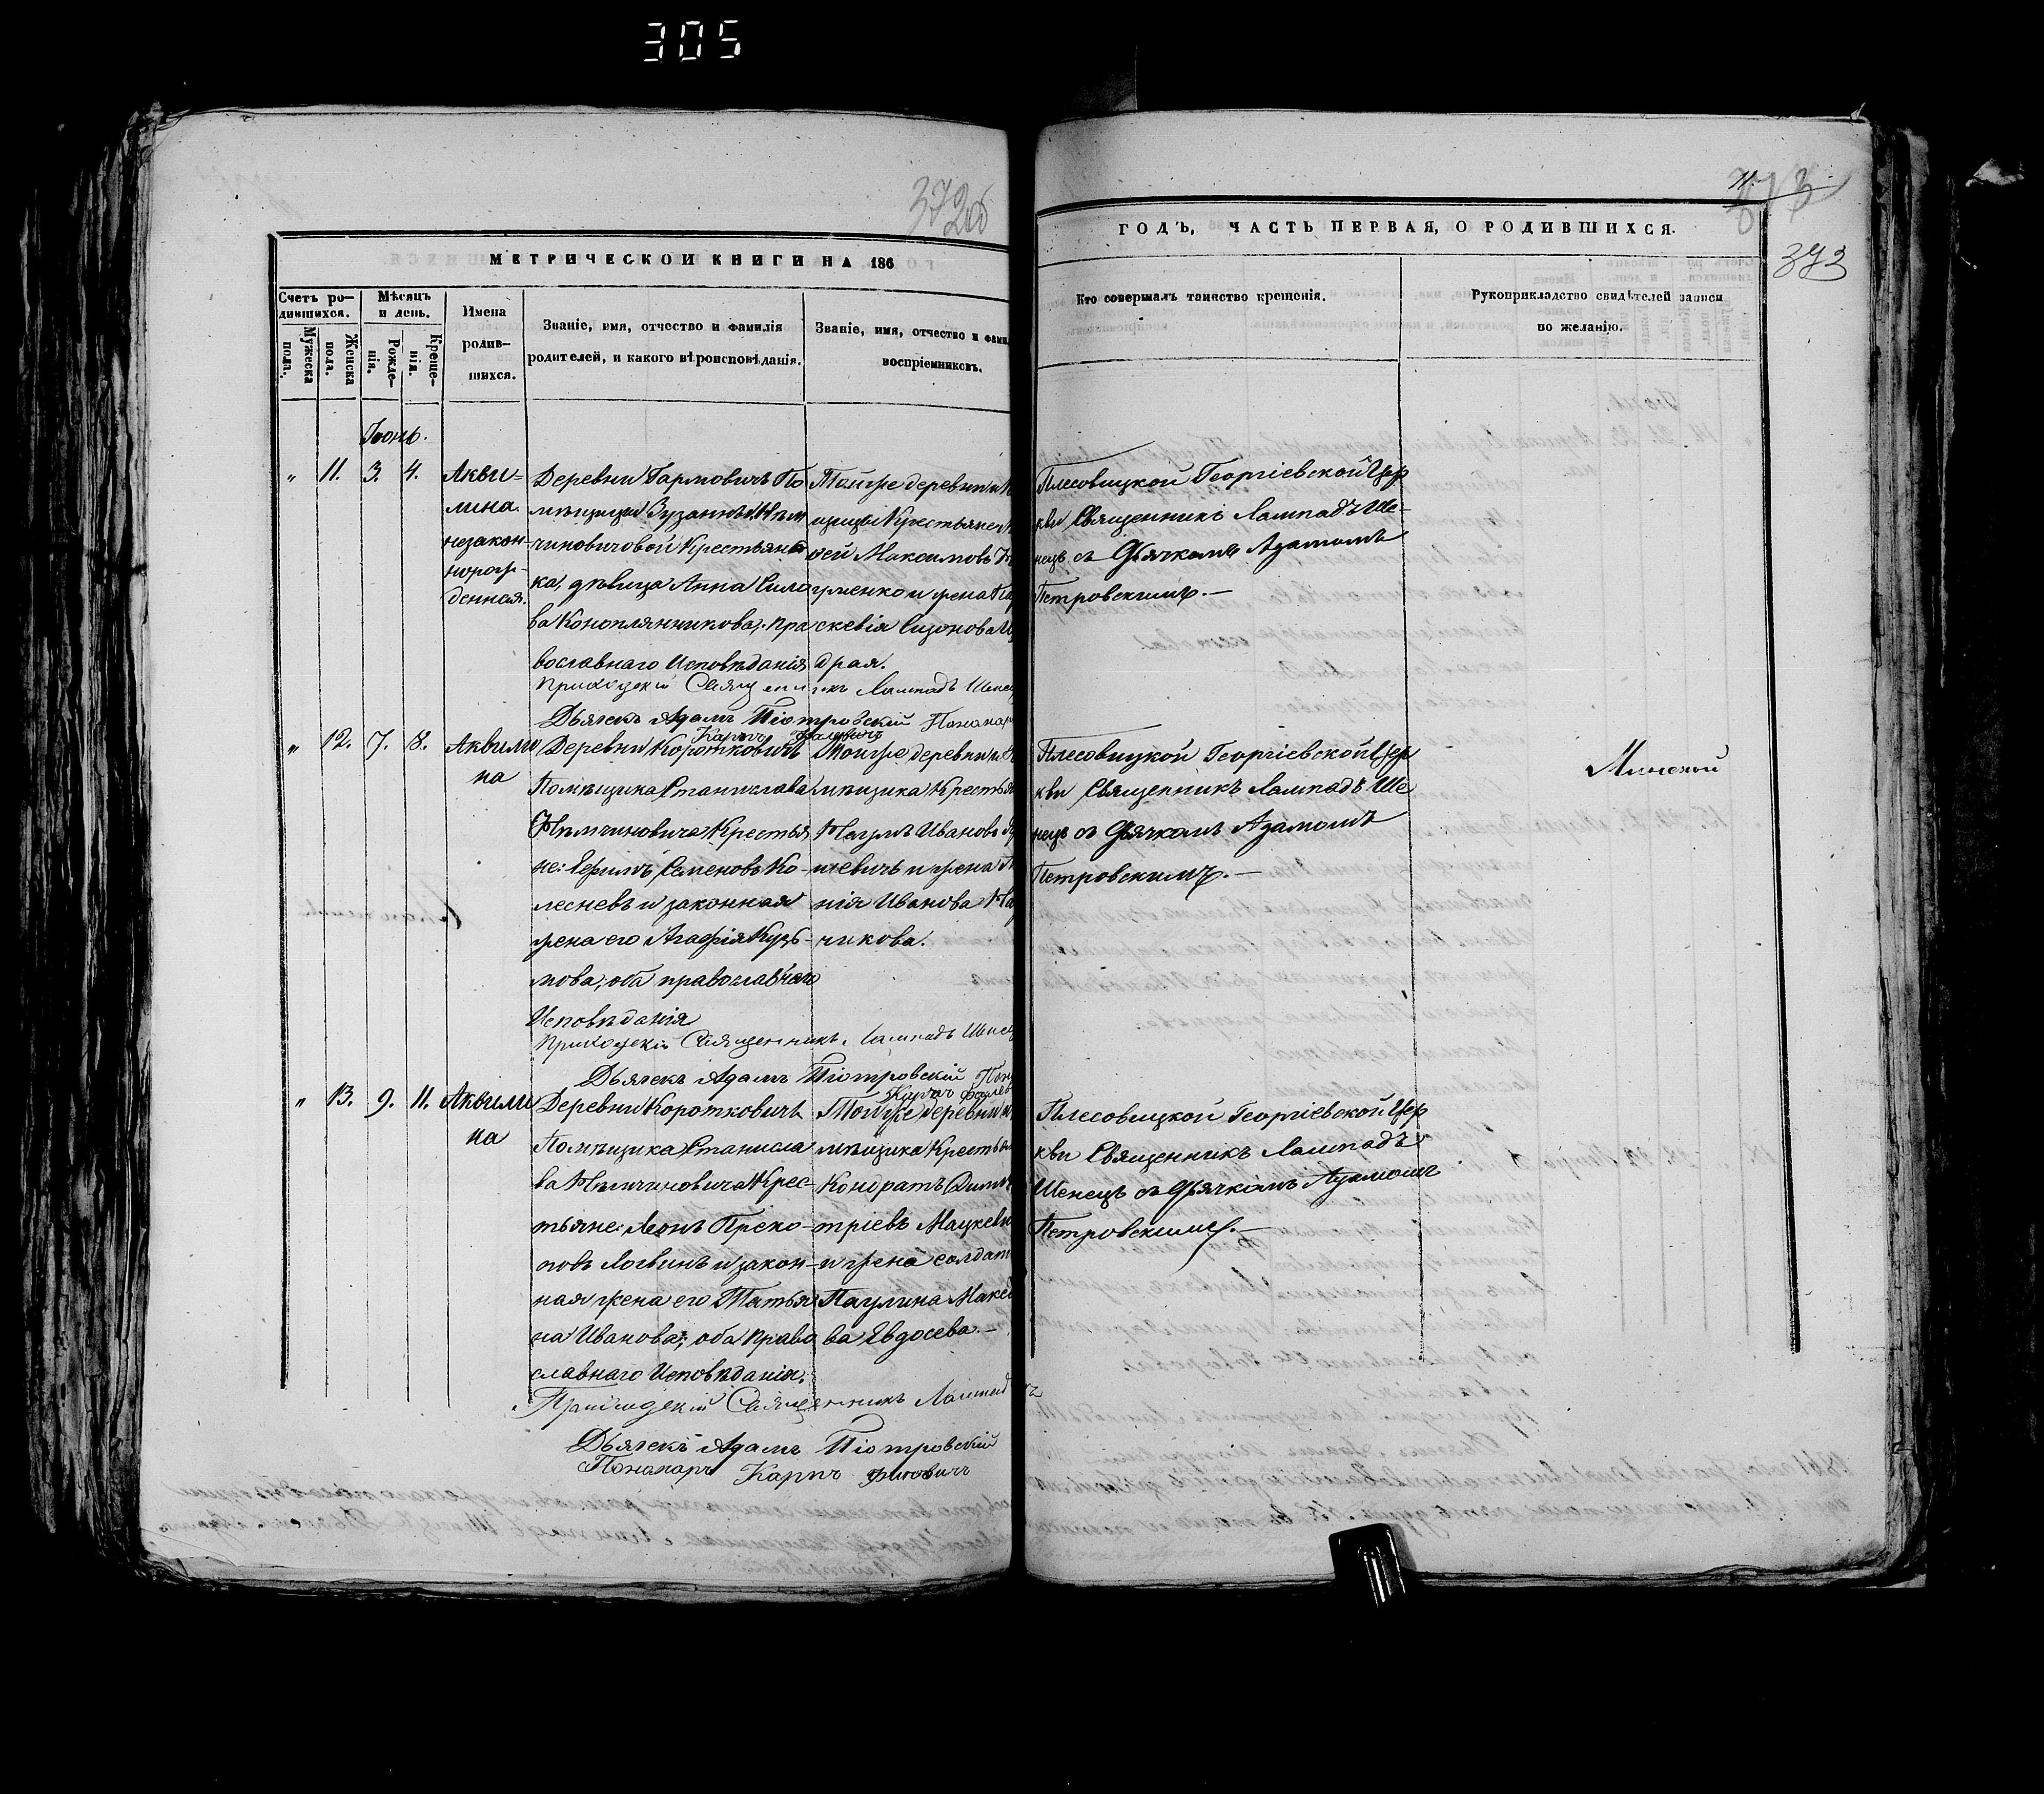 305
372об
МЕТРИЧЕСКОЙ КНИГИ НА 186
Счетъ ро-
дившихся.
Мужеска
пола.
Женска
пола.
Мѣсяцъ
и день.
Рожде-
нія.
Креще-
нія.
Имена
родив-
шихся.
Званіе, имя, отчество и фамилія
родителей, и какого вѣроисповѣданія.
Званіе, имя, отчество и фами
воспріемниковъ.
Іюнь.
" 11. 3. 4.
Акви-
лина
незакон-
норож-
денная.
Деревни Гармовичъ По
мѣщицы Зузанны Нѣм
чиновичовой Крестьян
ка, дѣвица Анна Сило
ва Коноплянникова, пра
вославнаго Исповѣданія
Тойже деревни и
щицы Крестьяне
сей Максимовъ
уменко и жена
скевія Сизонова
драя.
Приходскій Священникъ Лампадъ Шенец
Дьячекъ Адамъ Піотровскій Понамар
Карпъ
" 12. 7. 8.
Аквили
на
Деревни Коротковичъ
Помѣщика Станислава
Нѣмчиновича Крестья
не: Ефимъ Семеновъ Ко-
лесневъ и законная
жена его Агафія Кузь-
мова, оба православнаго
Исповѣданія
Тойже деревни и
мѣщика Крестья
Наумъ Ивановъ
невичъ и жена
нія Иванова
чикова.
Приходскій Священникъ Лампадъ Шенец
Дьячекъ Адамъ Піотровскій Пон
Карпъ
" 13. 9. 11.
Аквили
на
Деревни Коротковичъ
Помѣщика Станисла
ва Нѣмчиновича Крес-
тьяне: Леонъ Проко-
повъ Логвинъ и закон-
ная жена его Татья
на Иванова; оба Право
славнаго Исповѣданія.
Тойже деревни и
мѣщика Крестья
Кондратъ Дими
тріевъ Мацкеви
и жена солдат
Паулина Макс
ва Евдосева.—
Приходскій Священникъ Лампад
Дьячекъ Адамъ Піотровскій
Пономарь Карпъ
11.
373
ГОДЪ, ЧАСТЬ ПЕРВАЯ, О РОДИВШИХСЯ.
Кто совершалъ таинство крещенія.
Рукоприкладство свидѣтелей записи
по желанію.
Плесовицкой Георгіевской Цер
кви Священникъ Лампадъ Ше-
нецъ съ Дьячкомъ Адамомъ
Петровскимъ.—
Плесовицкой Георгіевской Цер
кви Священникъ Лампадъ Ше
нецъ съ Дьячкомъ Адамомъ
Петровскимъ.—
Минской
Плесовицкой Георгіевской Цер
кви Священникъ Лампадъ
Шенецъ съ Дьячкомъ Адамомъ
Петровскимъ.—